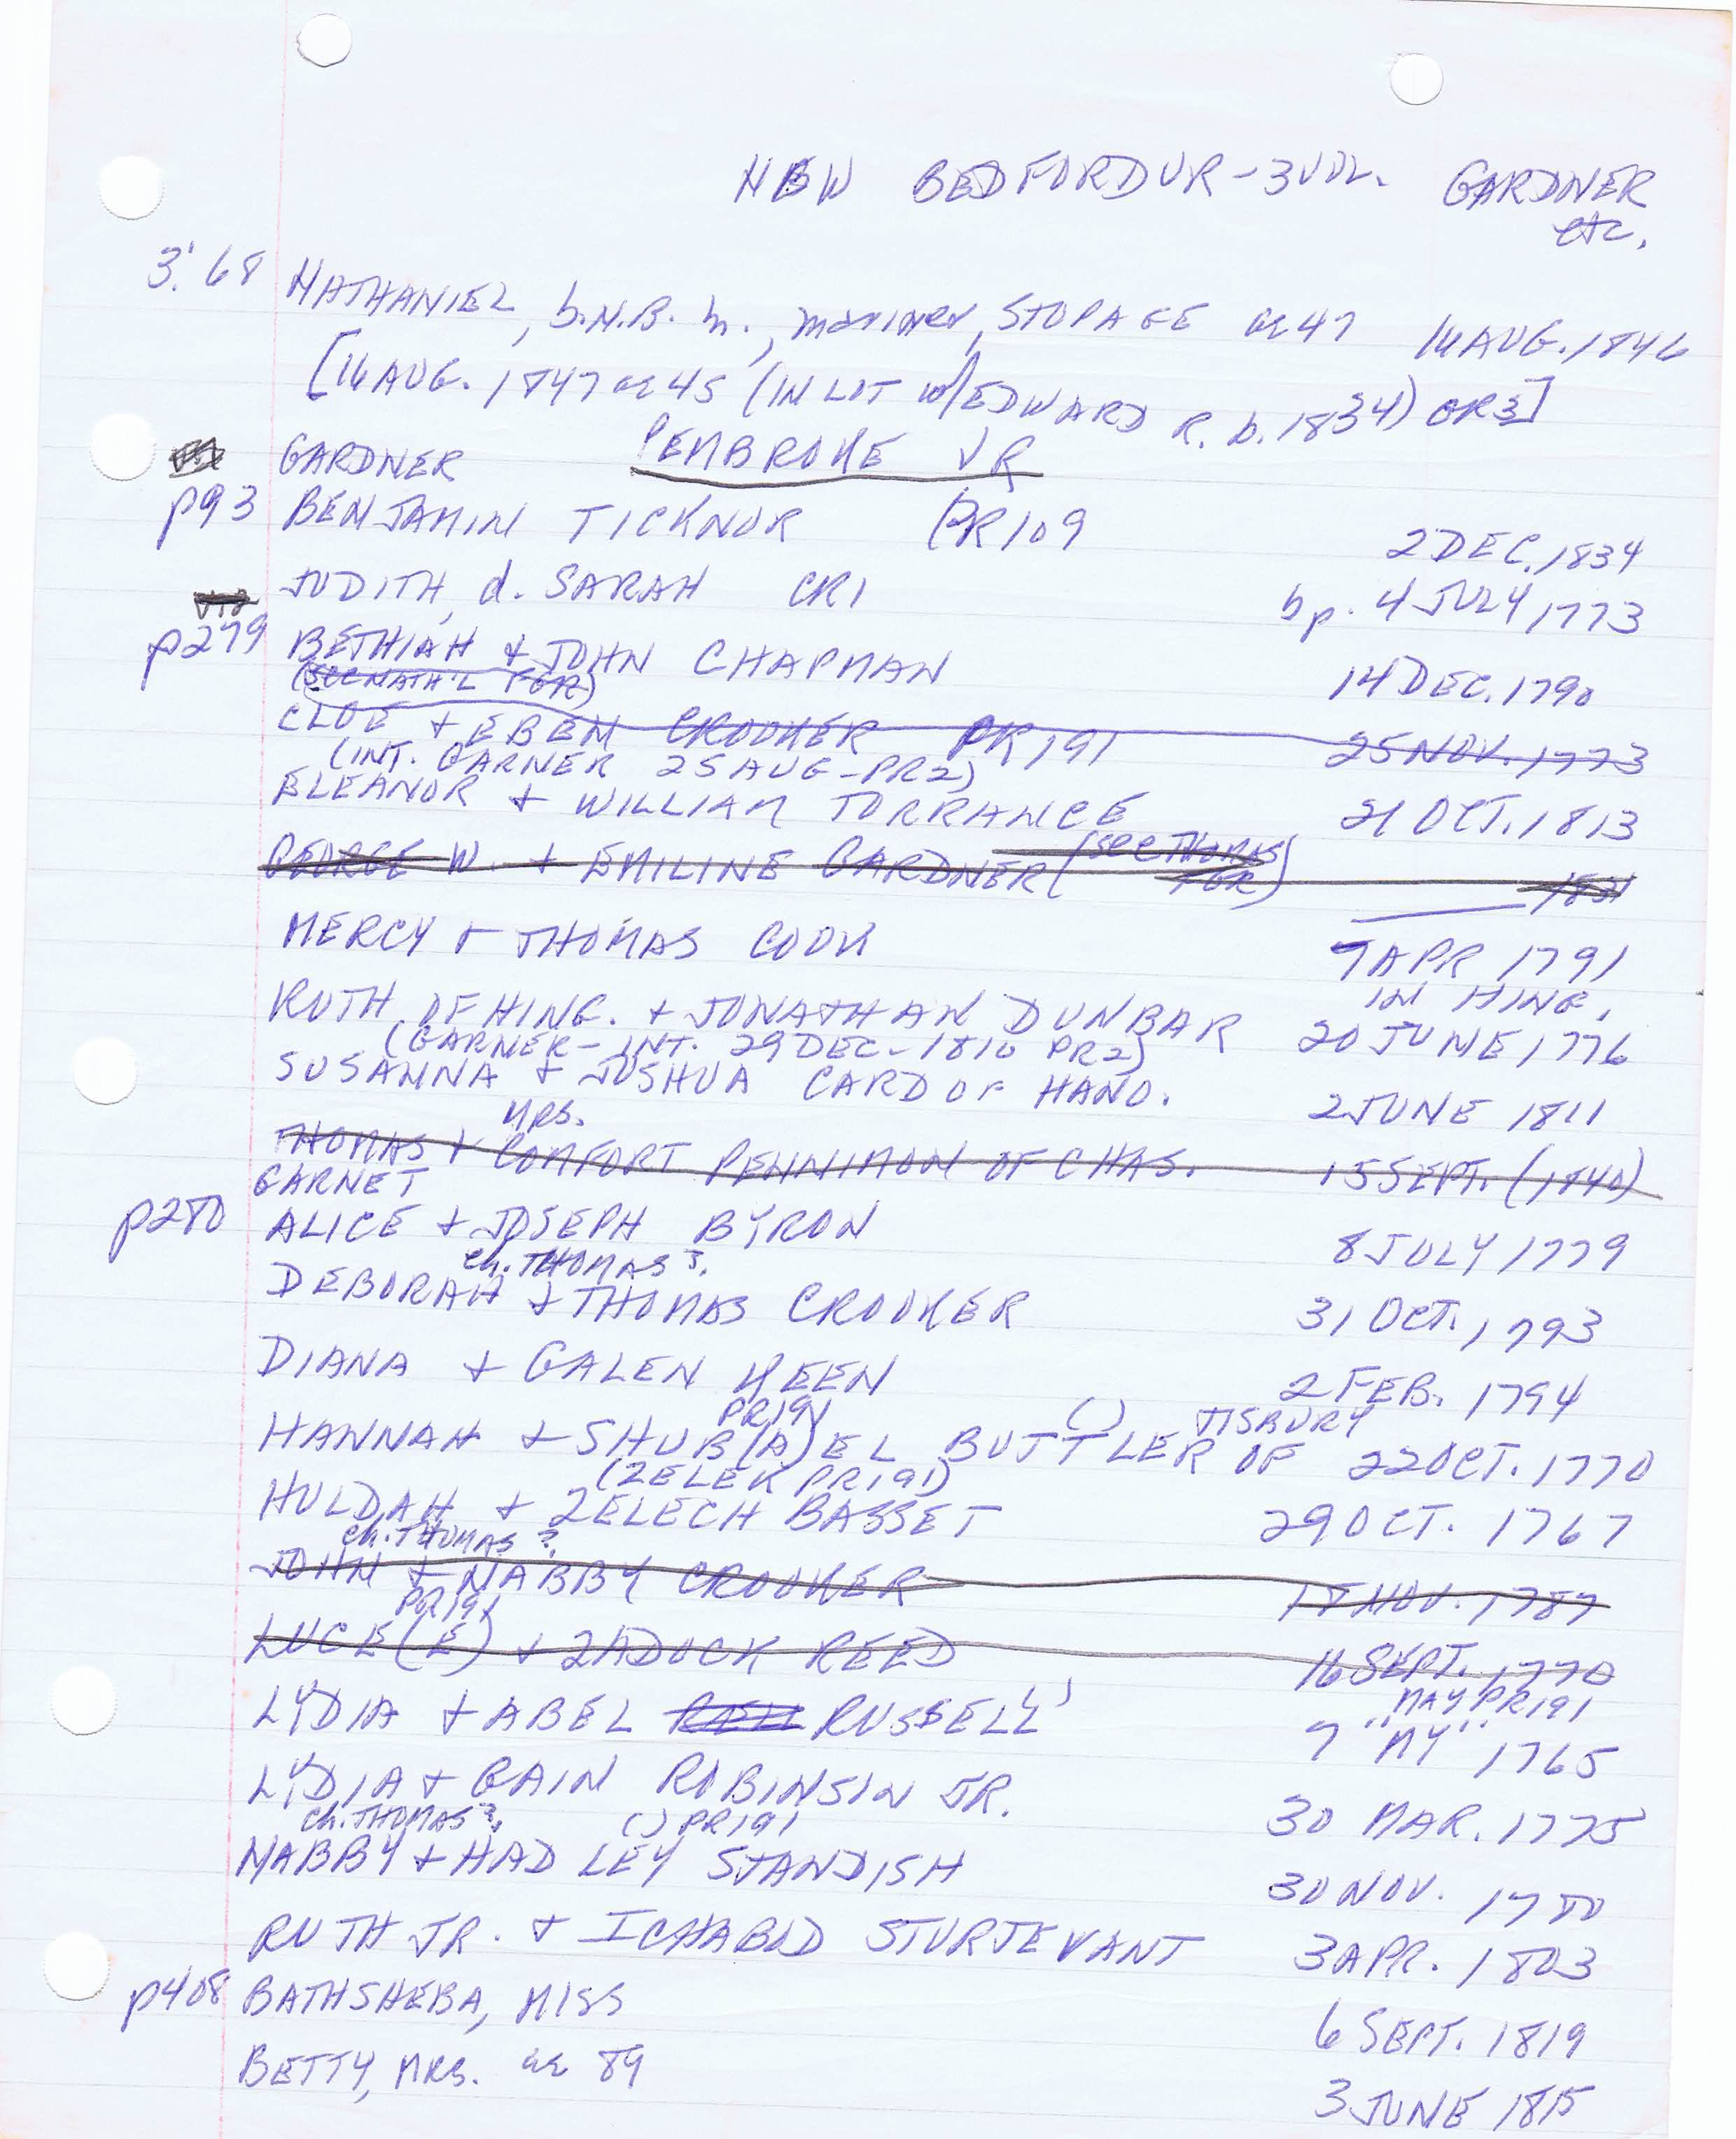 NEW BEDFORD VR - 3 VOL. GARDNER
etc.
3:68 NATHANIEL, b. N.B. h., mariner, STOPAGE ae 47 16 AUG. 1846
[16 AUG. 1847 ae 45 (IN LOT w/EDWARD R. b. 1834) GR3]
GARDNER PEMBROKE VR
p93 BENJAMIN TICKNOR PR109 2 DEC. 1834
JUDITH, d. SARAH CR1 bp. 4 JULY 1773
p279 BETHIAH + JOHN CHAPMAN 14 DEC. 1790
(SEE NATH'L FGR)
CLOE + EBEN CROOKER PR191 25 NOV. 1773
(INT. GARNER 25 AUG - PR2)
ELEANOR + WILLIAM TORRANCE 21 OCT. 1813
GEORGE W. + EMILINE GARDNER (SEE THOMAS FGR) 1831
MERCY + THOMAS COOK 7 APR 1791
IN HING.
RUTH OF HING. + JONATHAN DUNBAR 20 JUNE 1776
(GARNER - INT. 29 DEC - 1810 PR2)
SUSANNA + JOSHUA CARD OF HANO. 2 JUNE 1811
MRS.
THOMAS + COMFORT PENNIMON OF CHAS. 15 SEPT. (1840)
GARNET
p280 ALICE + JOSEPH BYRON 8 JULY 1779
ch. THOMAS?
DEBORAH + THOMAS CROOKER 31 OCT. 1793
DIANA + GALEN KEEN 2 FEB. 1794
PR191 ( ) TISBURY
HANNAH + SHUB(A)EL BUTTLER OF 22 OCT. 1770
(ZELEK PR191)
HULDAH + ZELECH BASSET 29 OCT. 1767
ch. THOMAS?
JOHN + NABBY CROOKER 18 NOV. 1787
PR191
LUCE(E) + ZADOCK REED 16 SEPT. 1770
MAY PR191
LYDIA + ABEL RUSSELL 7 "MY" 1765
LYDIA + GAIN ROBINSON JR. 30 MAR. 1775
ch. THOMAS? ( ) PR191
NABBY + HADLEY STANDISH 30 NOV. 1780
RUTH JR. + ICHABOD STURTEVANT 3 APR. 1803
p408 BATHSHEBA, MISS 6 SEPT. 1819
BETTY, MRS. ae 89 3 JUNE 1815